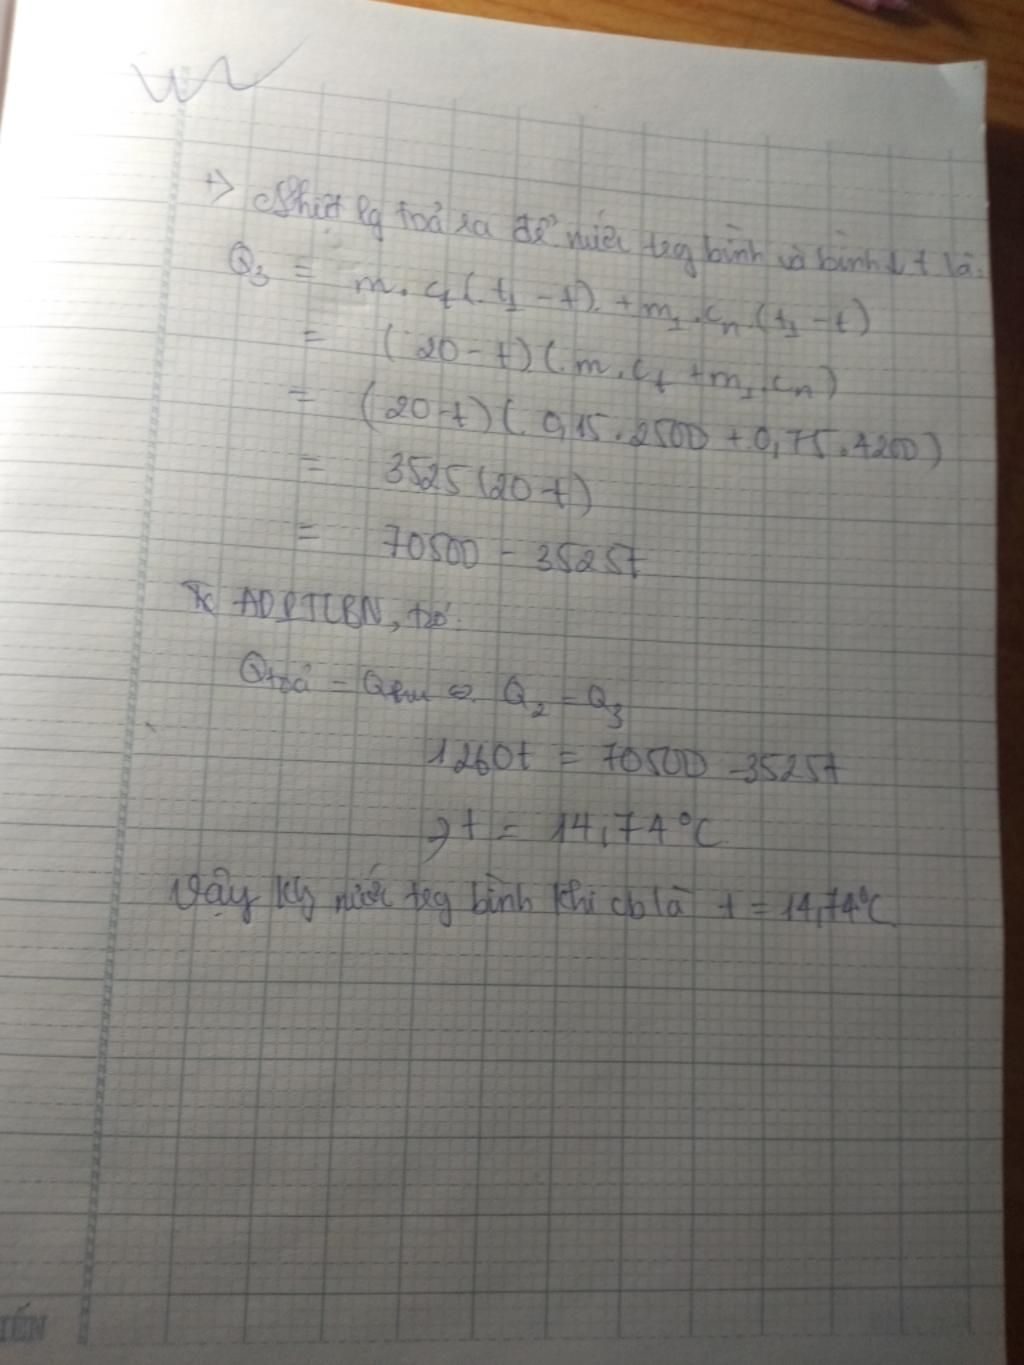 +> Nhiệt lg toả ra để nước trg bình và bình ↓ t là:
Q₃ = m.cₜ(t₁ - t) + m₁.cₙ.(t₁ - t)
= (20 - t)(m.cₜ + m₁.cₙ)
= (20 - t)(0,15.2500 + 0,75.4200)
= 3525(20-t)
= 70500 - 3525t
ADPTCBN, t có:
Qtoả = Qthu ⇔ Q₂ = Q₃
1260t = 70500 - 3525t
⇒ t = 14,74°C
Vậy nước trg bình khi cb là t = 14,74°C